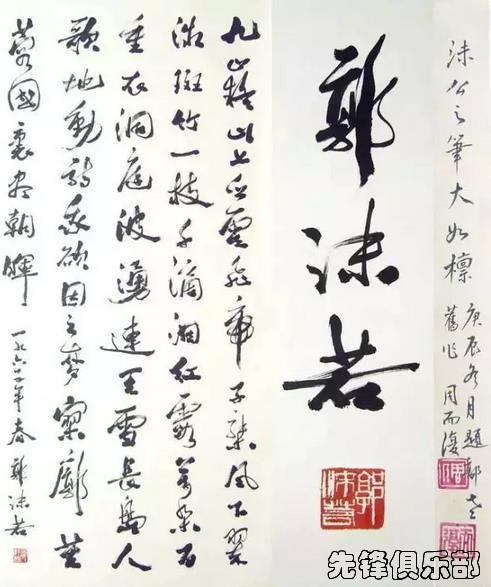 沫公之筆大如椽
庚辰冬月題郭老
舊作 周而復
郭沫若
郭沫若
九嶷山上白雲飛帝子乘風下翠
微斑竹一枝千滴淚紅霞萬朵百
重衣洞庭波湧連天雪長島人
歌地動詩我欲因之夢寥廓芙
蓉國裏盡朝暉 一九六二年春 郭沫若
先锋俱乐部